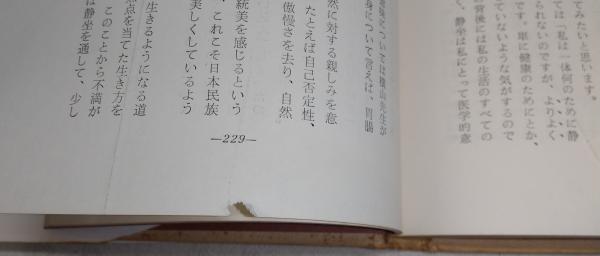 てみたいと思います。
ては「私は一体何のために静
られないのですが、よりよく
です。単に健康のためにとか、
ていないような気がするので
の背後には私の生活のすべての
く、静坐は私にとって医学的意
については横山先生が
身について言えば、胃腸
然に対する親しみを意
たとえば自己否定性、
傲慢さを去り、自然
統美を感じるという
、これこそ日本民族
美しくしているよう
生きるようになる道
点を当てた生き方を
このことから不満が
は静坐を通して、少し
—229—